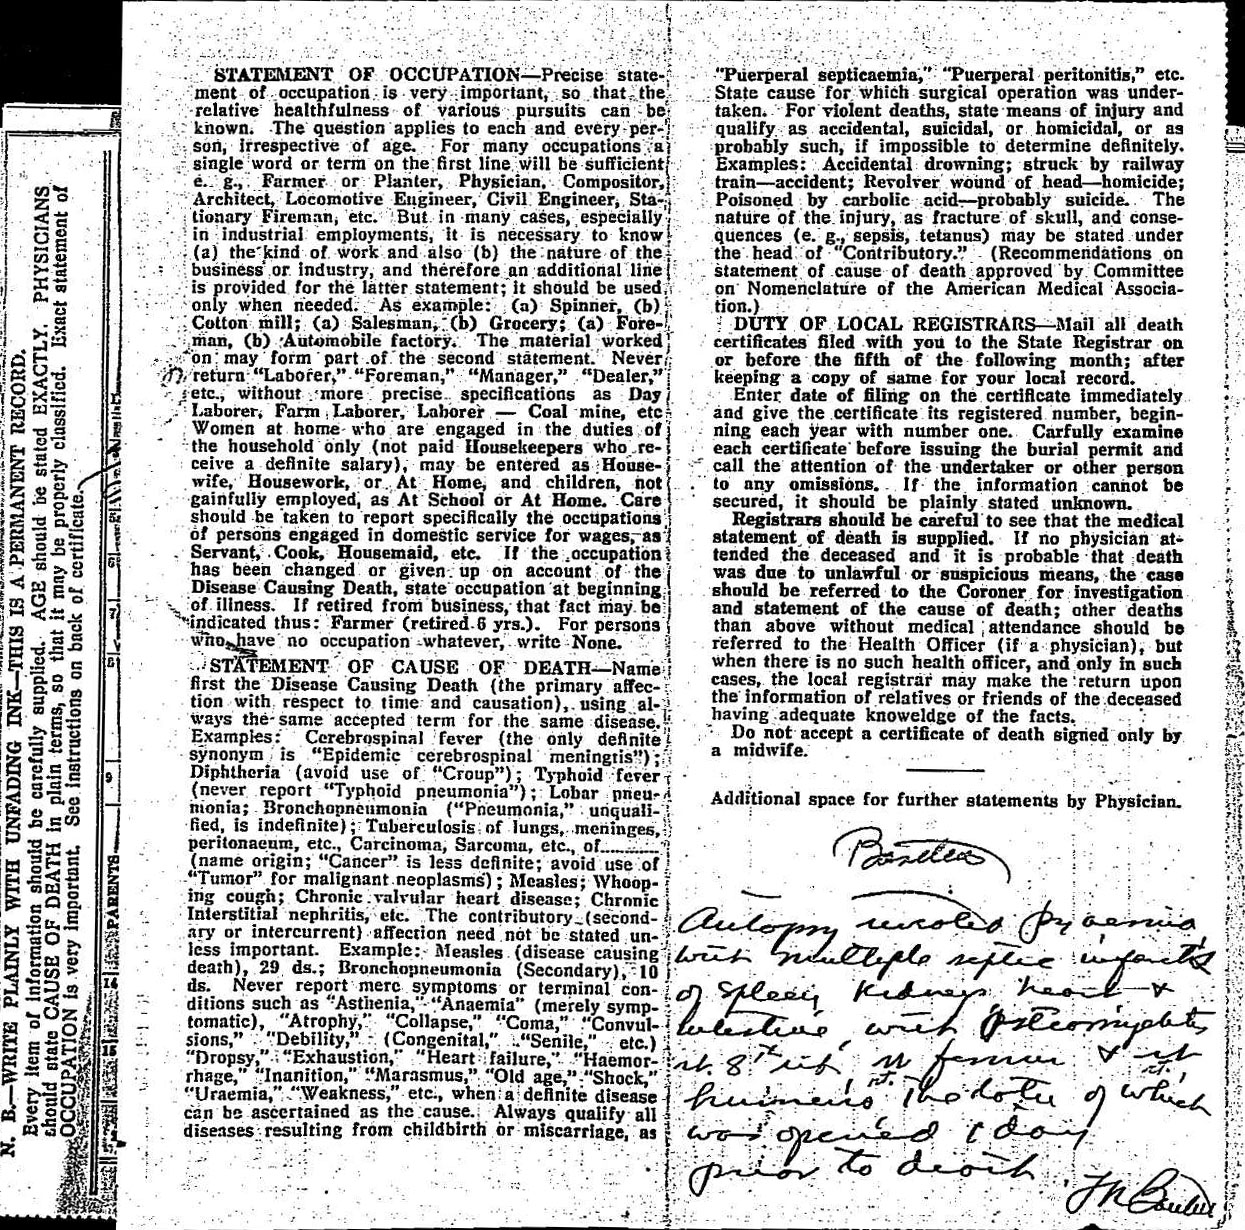 N. B.—WRITE PLAINLY WITH UNFADING INK—THIS IS A PERMANENT RECORD.
Every item of information should be carefully supplied. AGE should be stated EXACTLY. PHYSICIANS
should state CAUSE OF DEATH in plain terms, so that it may be properly classified. Exact statement of
OCCUPATION is very important. See instructions on back of certificate.
PARENTS
STATEMENT OF OCCUPATION—Precise state-
ment of occupation is very important, so that the
relative healthfulness of various pursuits can be
known. The question applies to each and every per-
son, irrespective of age. For many occupations a
single word or term on the first line will be sufficient
e. g., Farmer or Planter, Physician, Compositor,
Architect, Locomotive Engineer, Civil Engineer, Sta-
tionary Fireman, etc. But in many cases, especially
in industrial employments, it is necessary to know
(a) the kind of work and also (b) the nature of the
business or industry, and therefore an additional line
is provided for the latter statement; it should be used
only when needed. As example: (a) Spinner, (b)
Cotton mill; (a) Salesman, (b) Grocery; (a) Fore-
man, (b) Automobile factory. The material worked
on may form part of the second statement. Never
return "Laborer," "Foreman," "Manager," "Dealer,"
etc., without more precise specifications as Day
Laborer, Farm Laborer, Laborer — Coal mine, etc
Women at home who are engaged in the duties of
the household only (not paid Housekeepers who re-
ceive a definite salary), may be entered as House-
wife, Housework, or At Home, and children, not
gainfully employed, as At School or At Home. Care
should be taken to report specifically the occupations
of persons engaged in domestic service for wages, as
Servant, Cook, Housemaid, etc. If the occupation
has been changed or given up on account of the
Disease Causing Death, state occupation at beginning
of illness. If retired from business, that fact may be
indicated thus: Farmer (retired 6 yrs.). For persons
who have no occupation whatever, write None.
STATEMENT OF CAUSE OF DEATH—Name
first the Disease Causing Death (the primary affec-
tion with respect to time and causation), using al-
ways the same accepted term for the same disease.
Examples: Cerebrospinal fever (the only definite
synonym is "Epidemic cerebrospinal meningtis");
Diphtheria (avoid use of "Croup"); Typhoid fever
(never report "Typhoid pneumonia"); Lobar pneu-
monia; Bronchopneumonia ("Pneumonia," unquali-
fied, is indefinite); Tuberculosis of lungs, meninges,
peritonaeum, etc., Carcinoma, Sarcoma, etc., of..........
(name origin; "Cancer" is less definite; avoid use of
"Tumor" for malignant neoplasms); Measles; Whoop-
ing cough; Chronic valvular heart disease; Chronic
Interstitial nephritis, etc. The contributory (second-
ary or intercurrent) affection need not be stated un-
less important. Example: Measles (disease causing
death), 29 ds.; Bronchopneumonia (Secondary), 10
ds. Never report mere symptoms or terminal con-
ditions such as "Asthenia," "Anaemia" (merely symp-
tomatic), "Atrophy," "Collapse," "Coma," "Convul-
sions," "Debility," (Congenital," "Senile," etc.)
"Dropsy," "Exhaustion," "Heart failure," "Haemor-
rhage," "Inanition," "Marasmus," "Old age," "Shock,"
"Uraemia," "Weakness," etc., when a definite disease
can be ascertained as the cause. Always qualify all
diseases resulting from childbirth or miscarriage, as
"Puerperal septicaemia," "Puerperal peritonitis," etc.
State cause for which surgical operation was under-
taken. For violent deaths, state means of injury and
qualify as accidental, suicidal, or homicidal, or as
probably such, if impossible to determine definitely.
Examples: Accidental drowning; struck by railway
train—accident; Revolver wound of head—homicide;
Poisoned by carbolic acid—probably suicide. The
nature of the injury, as fracture of skull, and conse-
quences (e. g., sepsis, tetanus) may be stated under
the head of "Contributory." (Recommendations on
statement of cause of death approved by Committee
on Nomenclature of the American Medical Associa-
tion.)
DUTY OF LOCAL REGISTRARS—Mail all death
certificates filed with you to the State Registrar on
or before the fifth of the following month; after
keeping a copy of same for your local record.
Enter date of filing on the certificate immediately
and give the certificate its registered number, begin-
ning each year with number one. Carfully examine
each certificate before issuing the burial permit and
call the attention of the undertaker or other person
to any omissions. If the information cannot be
secured, it should be plainly stated unknown.
Registrars should be careful to see that the medical
statement of death is supplied. If no physician at-
tended the deceased and it is probable that death
was due to unlawful or suspicious means, the case
should be referred to the Coroner for investigation
and statement of the cause of death; other deaths
than above without medical attendance should be
referred to the Health Officer (if a physician), but
when there is no such health officer, and only in such
cases, the local registrar may make the return upon
the information of relatives or friends of the deceased
having adequate knoweldge of the facts.
Do not accept a certificate of death signed only by
a midwife.
Additional space for further statements by Physician.
Autopsy revealed pyaemia
with multiple septic infarcts
of spleen, kidneys heart &
intestine, with osteomyelitis
rt. 8th rib, rt femur & rt
humerus, the latter of which
was opened 1 day
prior to death